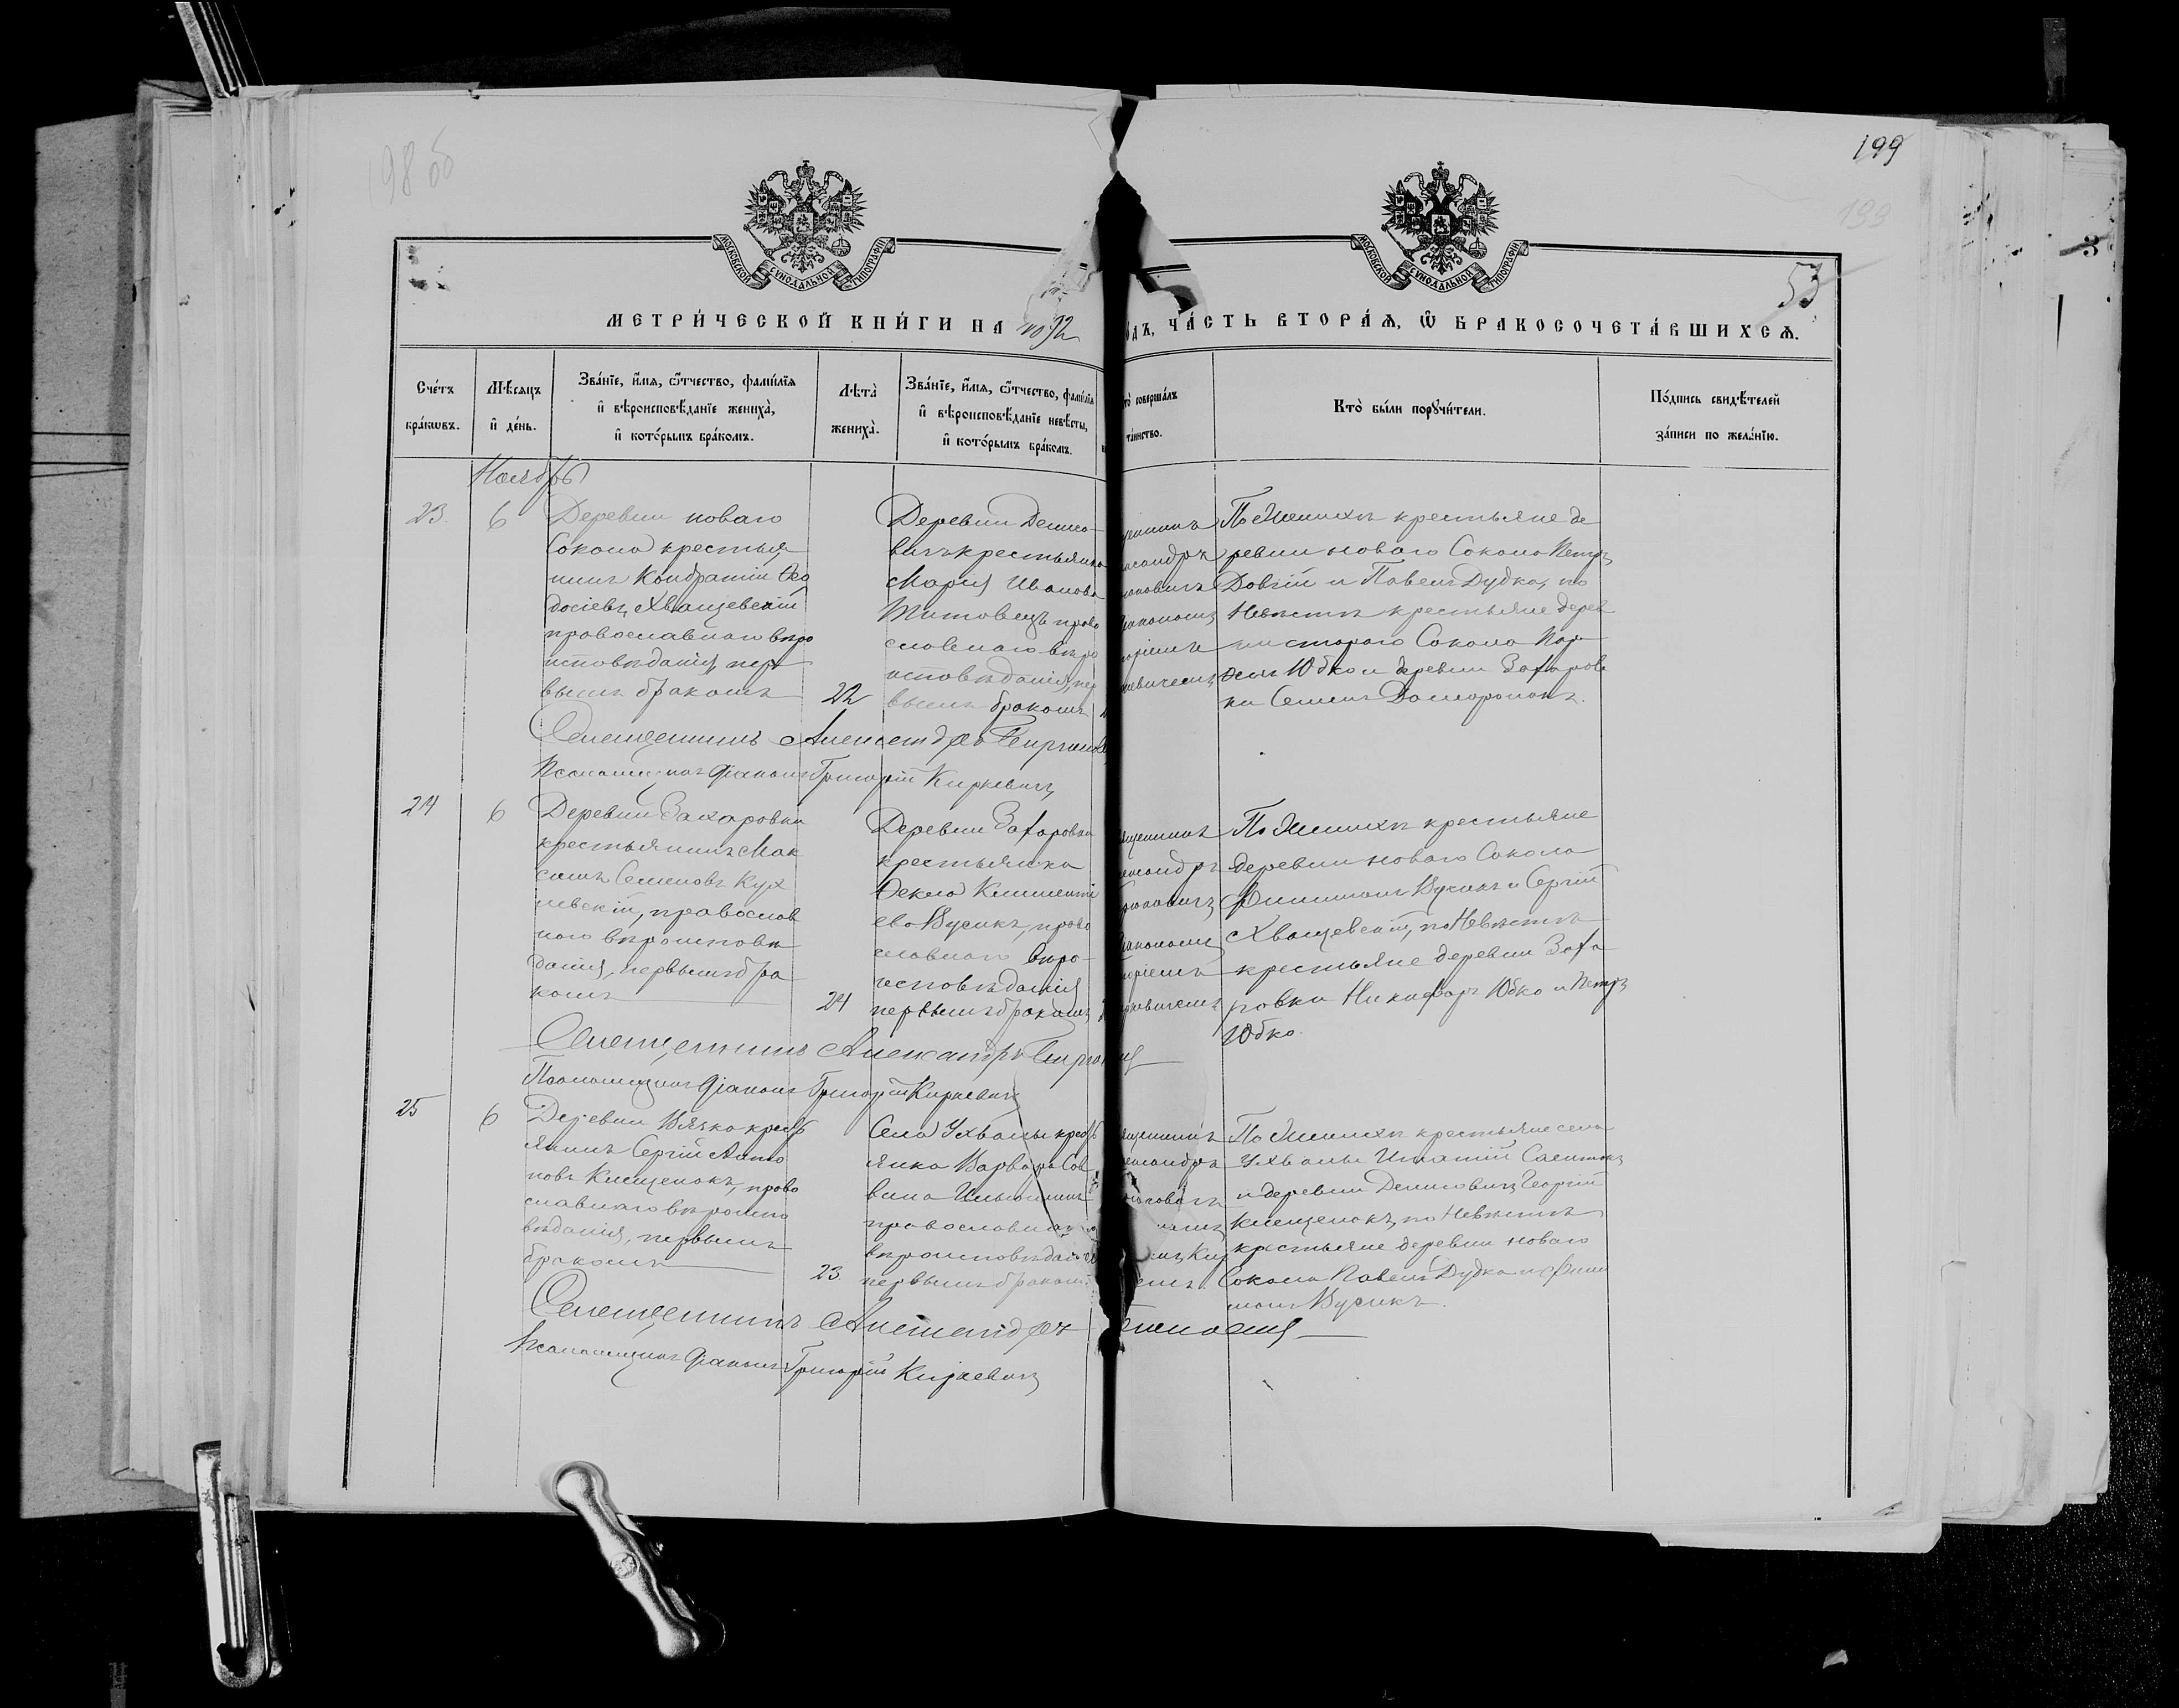 199
53
МОСКОВСКОЙ СУНОДАЛЬНОЙ ТИПОГРАФІИ
МОСКОВСКОЙ СУНОДАЛЬНОЙ ТИПОГРАФІИ
МЕТРИ́ЧЕСКОЙ КНИ́ГИ НА
ОДЪ, ЧА́СТЬ ВТОРА́Ѧ, Ѡ҆ БРАКОСОЧЕТА́ВШИХСѦ.
Сче́тъ
бра́кѡвъ.
Мѣ́сяцъ
и҆ де́нь.
Зва́нїе, и҆́мя, ѻ҆́тчество, фами́лїя
и҆ вѣроисповѣ́данїе жениха̀,
и҆ кото́рымъ бра́комъ.
Лѣта̀
жениха̀.
Зва́нїе, и҆́мя, ѻ҆́тчество, фами́лїя
и҆ вѣроисповѣ́данїе невѣ́сты,
и҆ кото́рымъ бра́комъ.
то̀ соверша́лъ
та́инство.
Кто̀ бы́ли порꙋчи́тели.
По́дпись свидѣ́телей
за́писи по жела́нїю.
Ноябрь
23
6
Деревни новаго
Сокола крестья
нинъ Кондратій Ѳео
досіевъ Хващевскій
православнаго вѣро
исповѣданія, пер
вымъ бракомъ
22
Деревни Денисо-
вичъ крестьянка
Марія Иванова
Титовецъ право
славнаго вѣро
исповѣданія, пер
вымъ бракомъ
По женихѣ крестьяне де
ревни новаго Сокола Петръ
Довгій и Павелъ Дудка, по
Невѣстѣ крестьяне дерев
ни стараго Сокола Пар
ѳенъ Юбко и деревни Захаров
ки Семенъ
Священникъ Александръ
Псаломщикъ Діаконъ Григорій Киркевичъ
24
6
Деревни Захаровки
крестьянинъ Мак
симъ Семеновъ Кух
левскій, православ
наго вѣроисповѣ
данія, первымъ бра
комъ
24
Деревни Захаровки
крестьянка
Ѳекла Климентіе
ева Вусикъ, право
славнаго вѣро-
исповѣданія
первымъ бракомъ
По женихѣ крестьяне
деревни новаго Сокола
Филимонъ Вусикъ и Сергій
Хващевскій, по Невѣстѣ
крестьяне деревни Заха
ровки Никифоръ Юбко и Петръ
Юбко.
Священникъ Александръ
Псаломщикъ Діаконъ Григорій Киркевичъ
25
6
Деревни Вячка крест
янинъ Сергій Анто
новъ Клещенокъ, право
славнаго вѣроиспо
вѣданія, первымъ
бракомъ
23
Села Ухвалы крест
янка Варвара Сав
вина
православнаго
вѣроисповѣданія
первымъ бракомъ
По женихѣ крестьяне села
Ухвалы Игнатій
и деревни Денисовичъ Георгій
Клещенокъ, по Невѣстѣ
крестьяне деревни новаго
Сокола Павелъ Дудка и Фили
монъ Вусикъ.
Священникъ Александръ
Псаломщикъ Діаконъ Григорій Киркевичъ